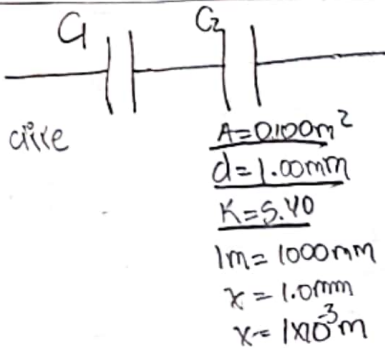 C₁ C₂
aire
A=0.100m²
d=1.00mm
K=5.40
1m=1000mm
x=1.0mm
x=1x10⁻³m